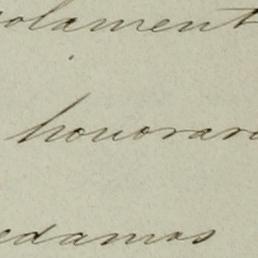 olament
honorar
edamos